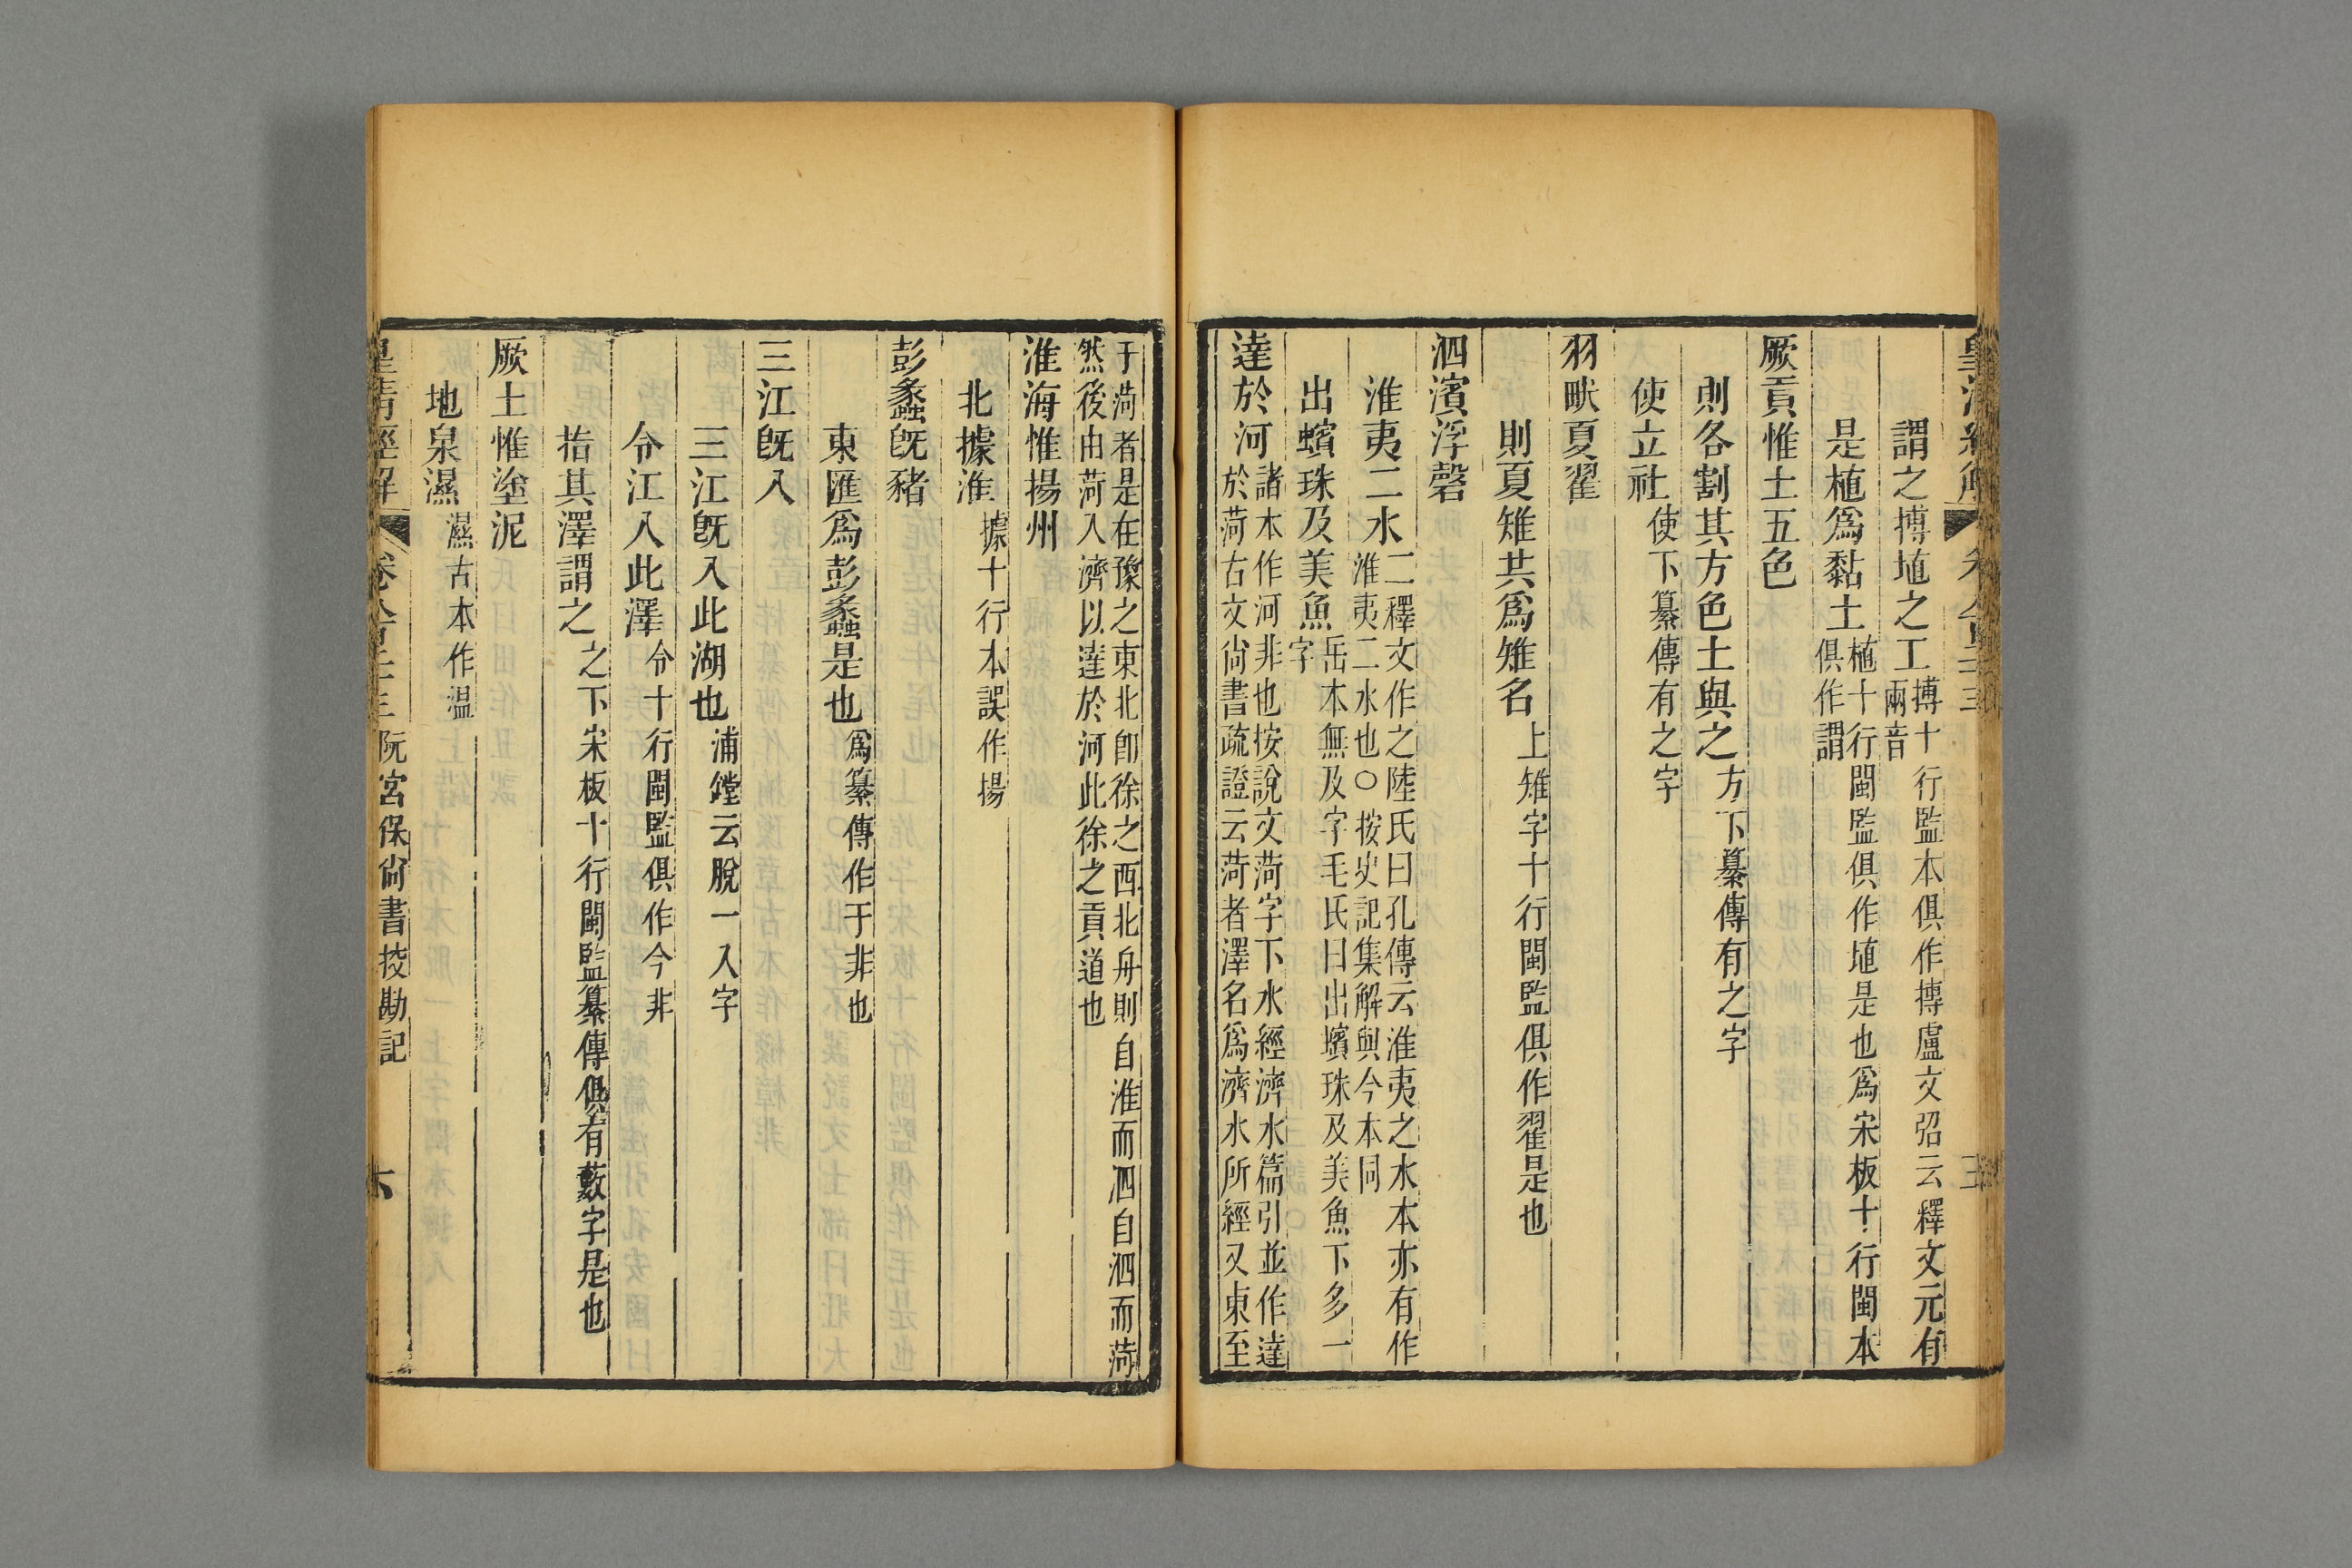 謂之搏埴之工搏十行監本俱作摶盧文弨云釋文元有兩音
是植爲黏土植十行閩監俱作埴是也爲宋板十行閩本俱作謂
厥貢惟土五色
則各割其方色土與之方下纂傳有之字
使立社使下纂傳有之字
羽畎夏翟
則夏雉共爲雉名上雉字十行閩監俱作翟是也
泗濱浮磬
淮夷二水二釋文作之陸氏曰孔傳云淮夷之水本亦有作淮夷二水也○按史記集解與今本同
出蠙珠及美魚岳本無及字毛氏曰出蠙珠及美魚下多一字
達於河諸本作河非也按說文菏字下水經濟水篇引並作達於菏古文尙書疏證云菏者澤名爲濟水所經又東至
于菏者是在豫之東北卽徐之西北舟則自淮而泗自泗而菏
然後由菏入濟以達於河此徐之貢道也
淮海惟揚州
北據淮據十行本誤作揚
彭蠡旣豬
東匯爲彭蠡是也爲纂傳作于非也
三江旣入
三江旣入此湖也浦鏜云脫一入字
令江入此澤令十行閩監俱作今非
指其澤謂之之下宋板十行閩監纂傳俱有藪字是也
厥土惟塗泥
地泉濕濕古本作溫
皇清經解 阮宮保尙書挍勘記 六